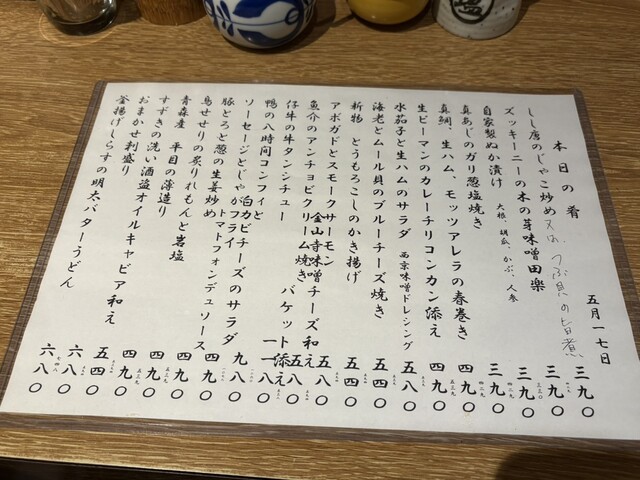 本日の肴
五月一七日
しし唐のじゃこ炒め 又は、つぶ貝の旨煮 三九〇
ズッキーニーの木の芽味噌田楽 三九〇
自家製ぬか漬け 大根、胡瓜、かぶ、人参 三九〇
真あじのガリ葱塩焼き 三九〇
真鯛、生ハム、モッツアレラの春巻き 四九〇
生ピーマンのカレーチリコンカン添え 四九〇
水茄子と生ハムのサラダ 西京味噌ドレシング 五八〇
海老とムール貝のブルーチーズ焼き 五四〇
新物 とうもろこしのかき揚げ 五四〇
アボガドとスモークサーモン
金山寺味噌チーズ和え 五八〇
魚介のアンチョビクリーム焼き
バケット添え 五八〇
仔牛の牛タンシチュー 一一八〇
鴨の八時間コンフィと
白カビチーズのサラダ 九八〇
ソーセージとじゃがフライ
トマトフォンデュソース 四九〇
豚とろと葱の生姜炒め 四九〇
鳥せせりの炙りれもんと岩塩 四九〇
青森産 平目の薄造り
すずきの洗い 酒盗オイルキャビア和え 五四〇
おまかせ刺盛り 六八〇
釜揚げしらすの明太バターうどん 六八〇